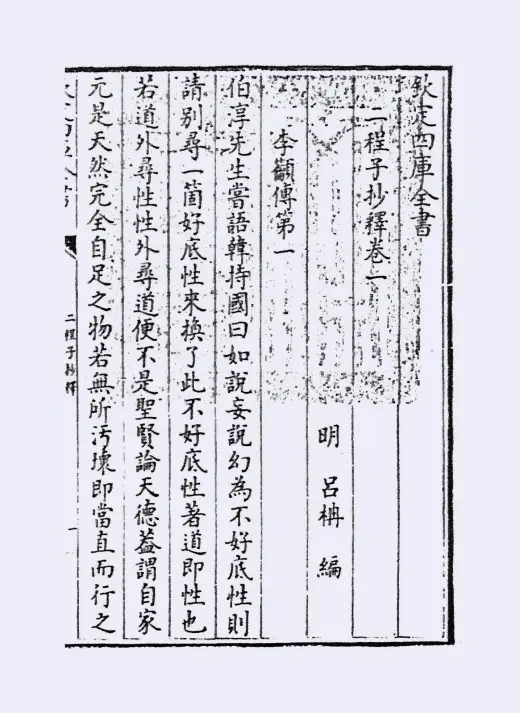 欽定四庫全書
二程子抄釋卷一
明 呂柟 編
李籲傳第一
伯淳先生嘗語韓持國曰如說妄說幻為不好底性則
請别尋一箇好底性來換了此不好底性著道即性也
若道外尋性性外尋道便不是聖賢論天德葢謂自家
元是天然完全自足之物若無所汚壞即當直而行之
二程子抄釋
一